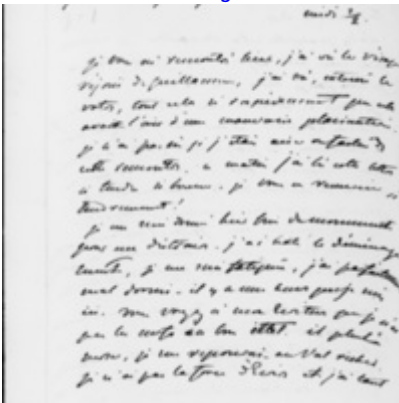 midi
je vous ai rencontré hier, j'ai vu le visage
réjoui de guillaume, j'ai vu, entrevu le
votre, tout cela si rapidement que cela
avait l'air d'une mauvaise plaisanterie.
je n'ai pas su si j'étais
cette rencontre. ce matin j'ai lu cette lettre
si tendre si bonne. je vous en remercie
tendrement!
je me suis donné hier bien du mouvement
pour me distraire. j'ai hâté le déménage
ment, je me suis fatiguée, j'ai parfaitement
mal dormi. il y a une heure que je suis
ici. vous voyez à mon écriture que je n'ai
pas les nerfs en bon état. il pleut
je me reposerai au Val
je n'ai pas la force d'écrire et j'ai tant